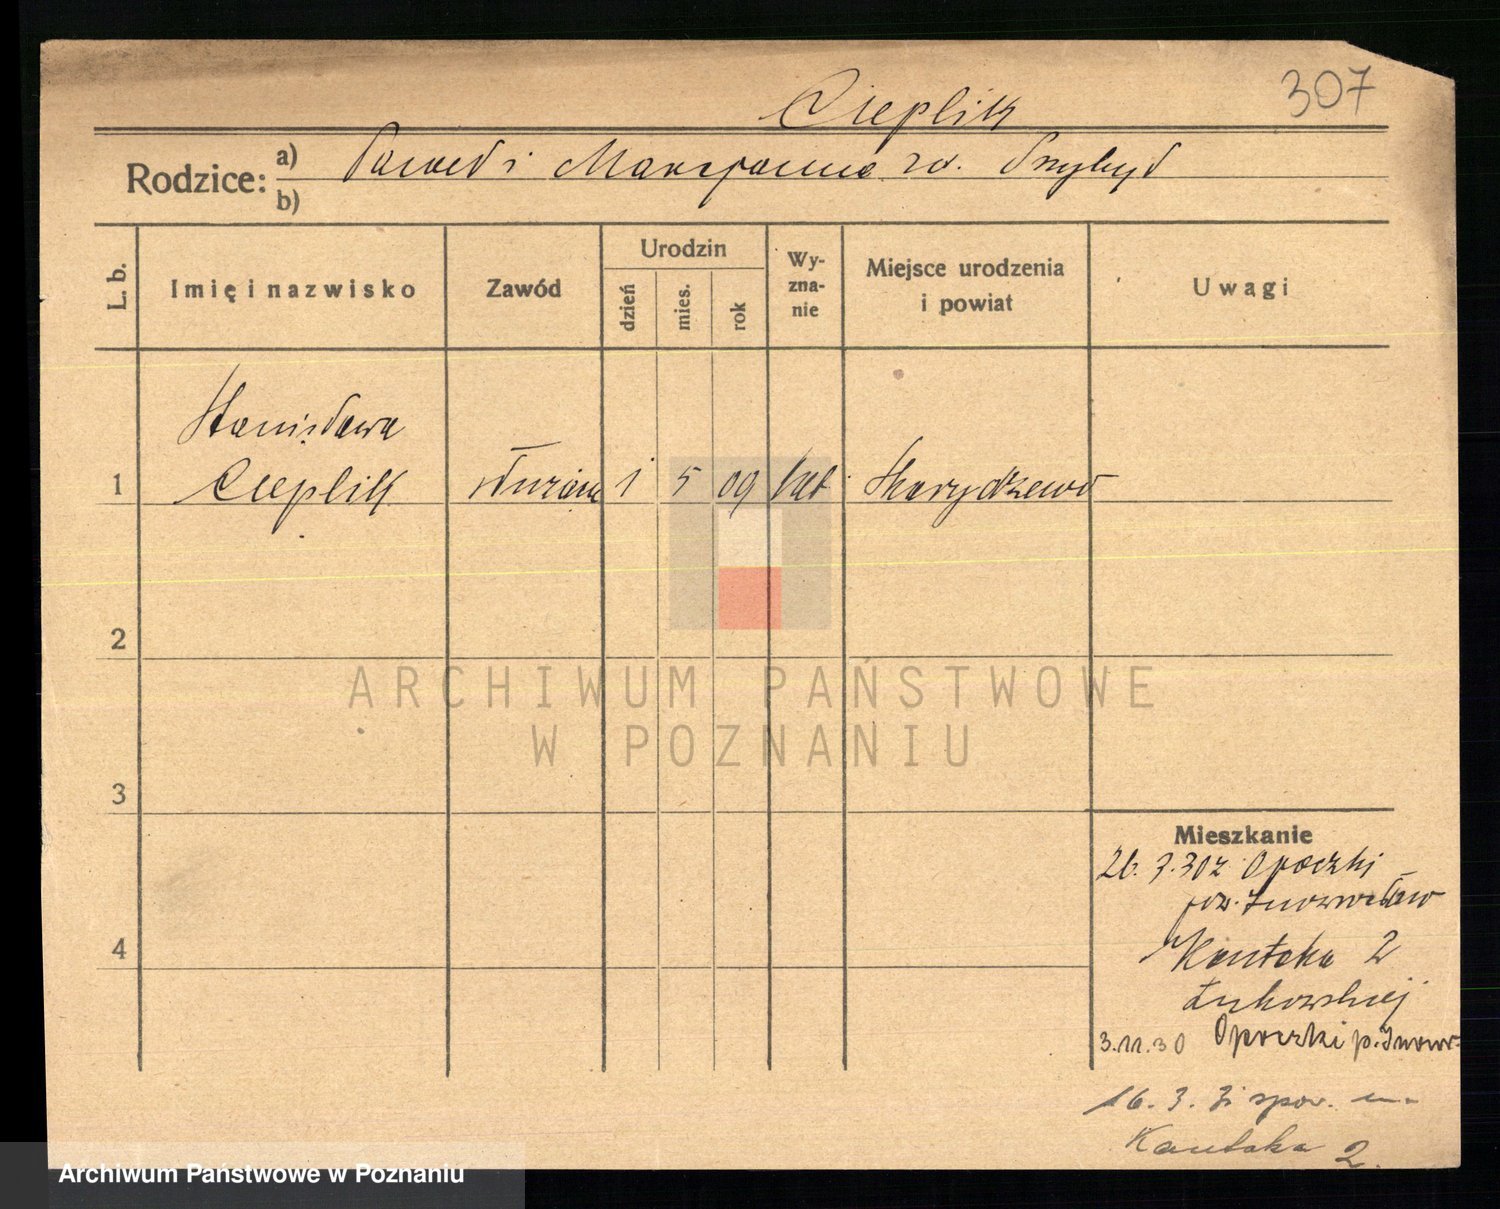 307
Cieplik
Rodzice: a) Paweł i Marcjanna zd. Przybył
b)
L. b.
Imię i nazwisko
Zawód
Urodzin
dzień
mies.
rok
Wy-
zna-
nie
Miejsce urodzenia
i powiat
Uwagi
Stanisława
1 Cieplik służąca 1 5 09 kat.
2
3
4
ARCHIWUM PAŃSTWOWE
W POZNANIU
Mieszkanie
26. 7. 30 z Opoczki
pow. Inowrocław
Kantaka 2
Łukowskiej
3.11.30 Opoczki p. Inowr.
16. 3. 31 spow. m.
Kantaka 2.
Archiwum Państwowe w Poznaniu